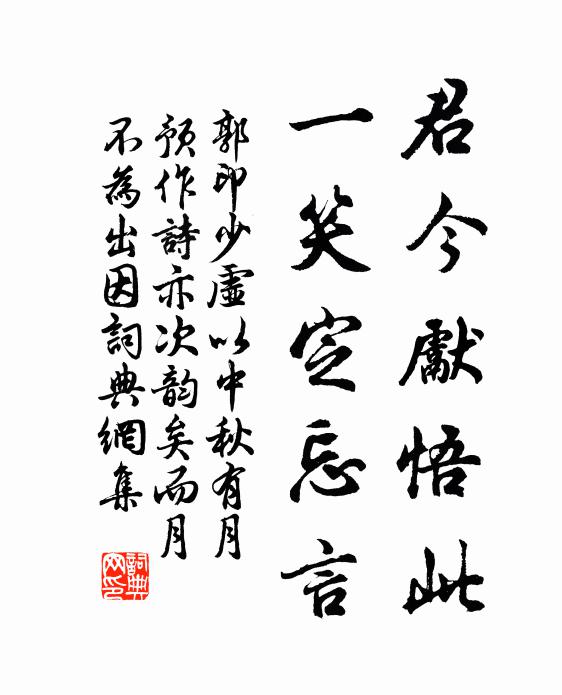 君今獻悟此
一笑定忘言
郭印少虛以中秋有月
預作詩亦次韵矣而月
不為出因詞典網集
詞典网印